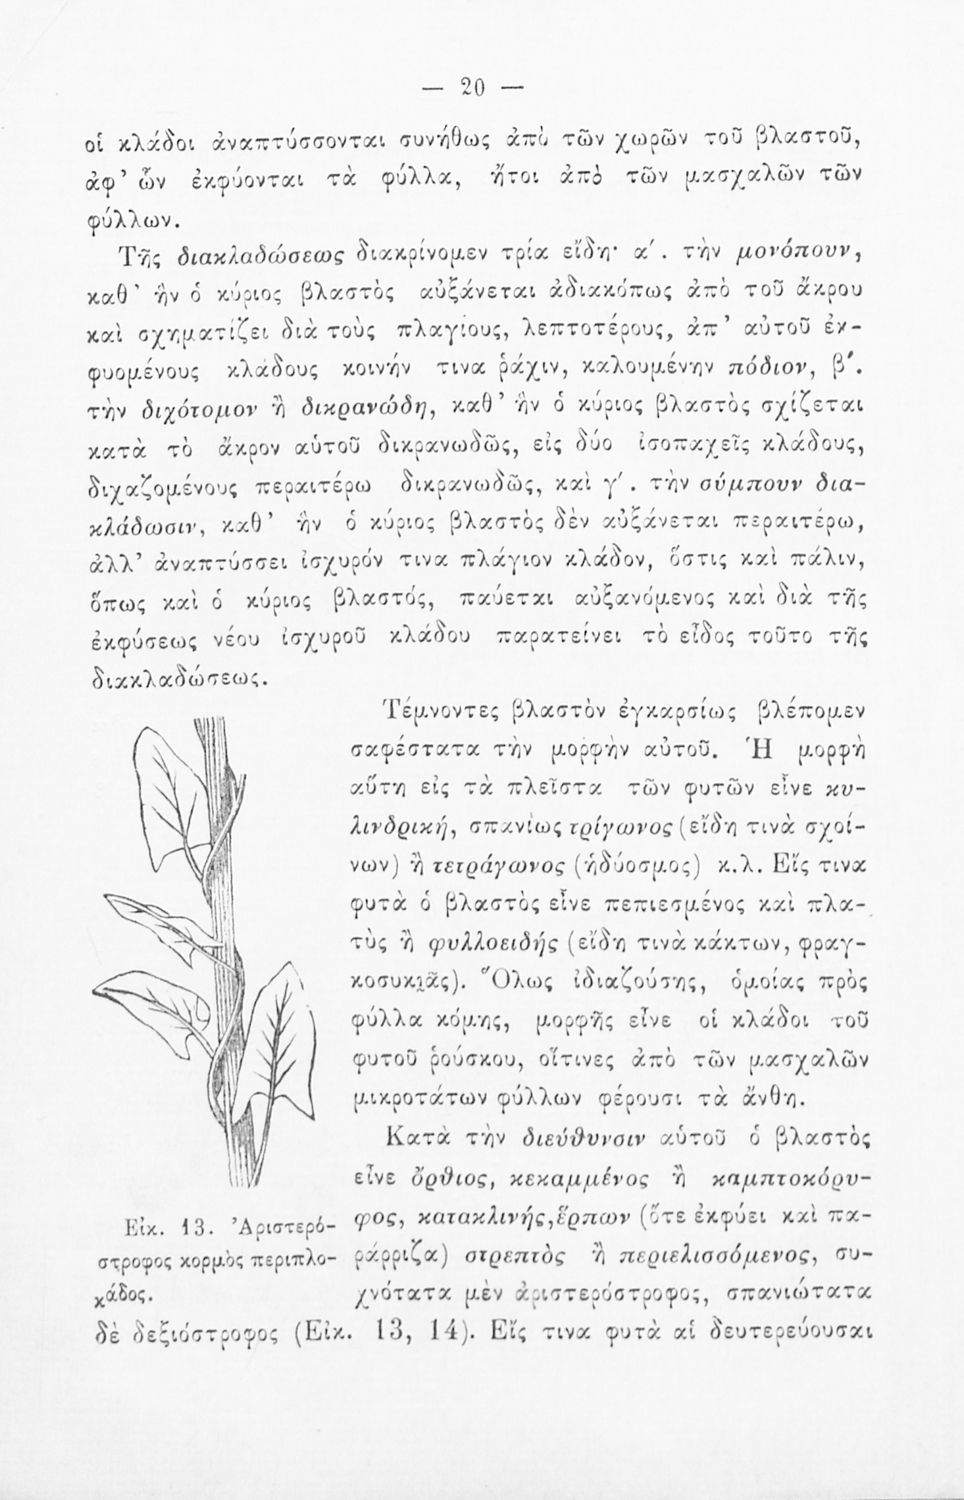 — 20 —
οἱ κλάδοι ἀναπτύσσονται συνήθως ἀπὸ τῶν χωρῶν τοῦ βλαστοῦ,
ἀφ’ ὧν ἐκφύονται τὰ φύλλα, ἤτοι ἀπὸ τῶν μασχαλῶν τῶν
φύλλων.
Τῆς διακλαδώσεως διακρίνομεν τρία εἴδη· α΄. τὴν μονόπουν,
καθ’ ἣν ὁ κύριος βλαστὸς αὐξάνεται ἀδιακόπως ἀπὸ τοῦ ἄκρου
καὶ σχηματίζει διὰ τοὺς πλαγίους, λεπτοτέρους, ἀπ’ αὐτοῦ ἐκ-
φυομένους κλάδους κοινήν τινα ῥάχιν, καλουμένην πόδιον, β΄.
τὴν διχότομον ἢ δικρανώδη, καθ’ ἣν ὁ κύριος βλαστὸς σχίζεται
κατὰ τὸ ἄκρον αὑτοῦ δικρανωδῶς, εἰς δύο ἰσοπαχεῖς κλάδους,
διχαζομένους περαιτέρω δικρανωδῶς, καὶ γ΄. τὴν σύμπουν δια-
κλάδωσιν, καθ’ ἣν ὁ κύριος βλαστὸς δὲν αὐξάνεται περαιτέρω,
ἀλλ’ ἀναπτύσσει ἰσχυρόν τινα πλάγιον κλάδον, ὅστις καὶ πάλιν,
ὅπως καὶ ὁ κύριος βλαστός, παύεται αὐξανόμενος καὶ διὰ τῆς
ἐκφύσεως νέου ἰσχυροῦ κλάδου παρατείνει τὸ εἶδος τοῦτο τῆς
διακλαδώσεως.
Τέμνοντες βλαστὸν ἐγκαρσίως βλέπομεν
σαφέστατα τὴν μορφὴν αὐτοῦ. Ἡ μορφὴ
αὕτη εἰς τὰ πλεῖστα τῶν φυτῶν εἶνε κυ-
λινδρική, σπανίως τρίγωνος (εἴδη τινὰ σχοί-
νων) ἢ τετράγωνος (ἡδύοσμος) κ.λ. Εἴς τινα
φυτὰ ὁ βλαστὸς εἶνε πεπιεσμένος καὶ πλα-
τὺς ἢ φυλλοειδής (εἴδη τινὰ κάκτων, φραγ-
κοσυκιᾶς). Ὅλως ἰδιαζούσης, ὁμοίας πρὸς
φύλλα κόμης, μορφῆς εἶνε οἱ κλάδοι τοῦ
φυτοῦ ῥούσκου, οἵτινες ἀπὸ τῶν μασχαλῶν
μικροτάτων φύλλων φέρουσι τὰ ἄνθη.
Κατὰ τὴν διεύθυνσιν αὑτοῦ ὁ βλαστὸς
εἶνε ὄρθιος, κεκαμμένος ἢ καμπτοκόρυ-
φος, κατακλινής, ἕρπων (ὅτε ἐκφύει καὶ πα-
ράρριζα) στρεπτὸς ἢ περιελισσόμενος, συ-
χνότατα μὲν ἀριστερόστροφος, σπανιώτατα
δὲ δεξιόστροφος (Εἰκ. 13, 14). Εἴς τινα φυτὰ αἱ δευτερεύουσαι
Εἰκ. 13. Ἀριστερό-
στροφος κορμὸς περιπλο-
κάδος.